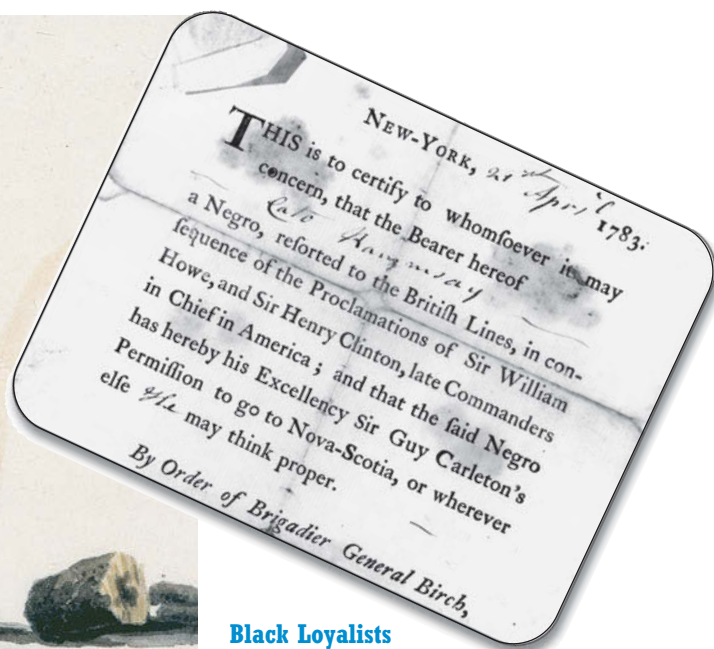 NEW-YORK, 21st April 1783.
THIS is to certify to whomſoever it may
concern, that the Bearer hereof
Cato Ramſay
a Negro, reſorted to the Britiſh Lines, in con-
ſequence of the Proclamations of Sir William
Howe, and Sir Henry Clinton, late Commanders
in Chief in America; and that the ſaid Negro
has hereby his Excellency Sir Guy Carleton's
Permiſſion to go to Nova-Scotia, or wherever
elſe He may think proper.
By Order of Brigadier General Birch,
Black Loyalists